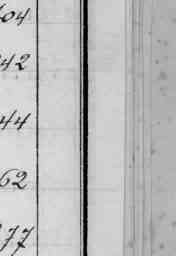 604
42
44
62
77